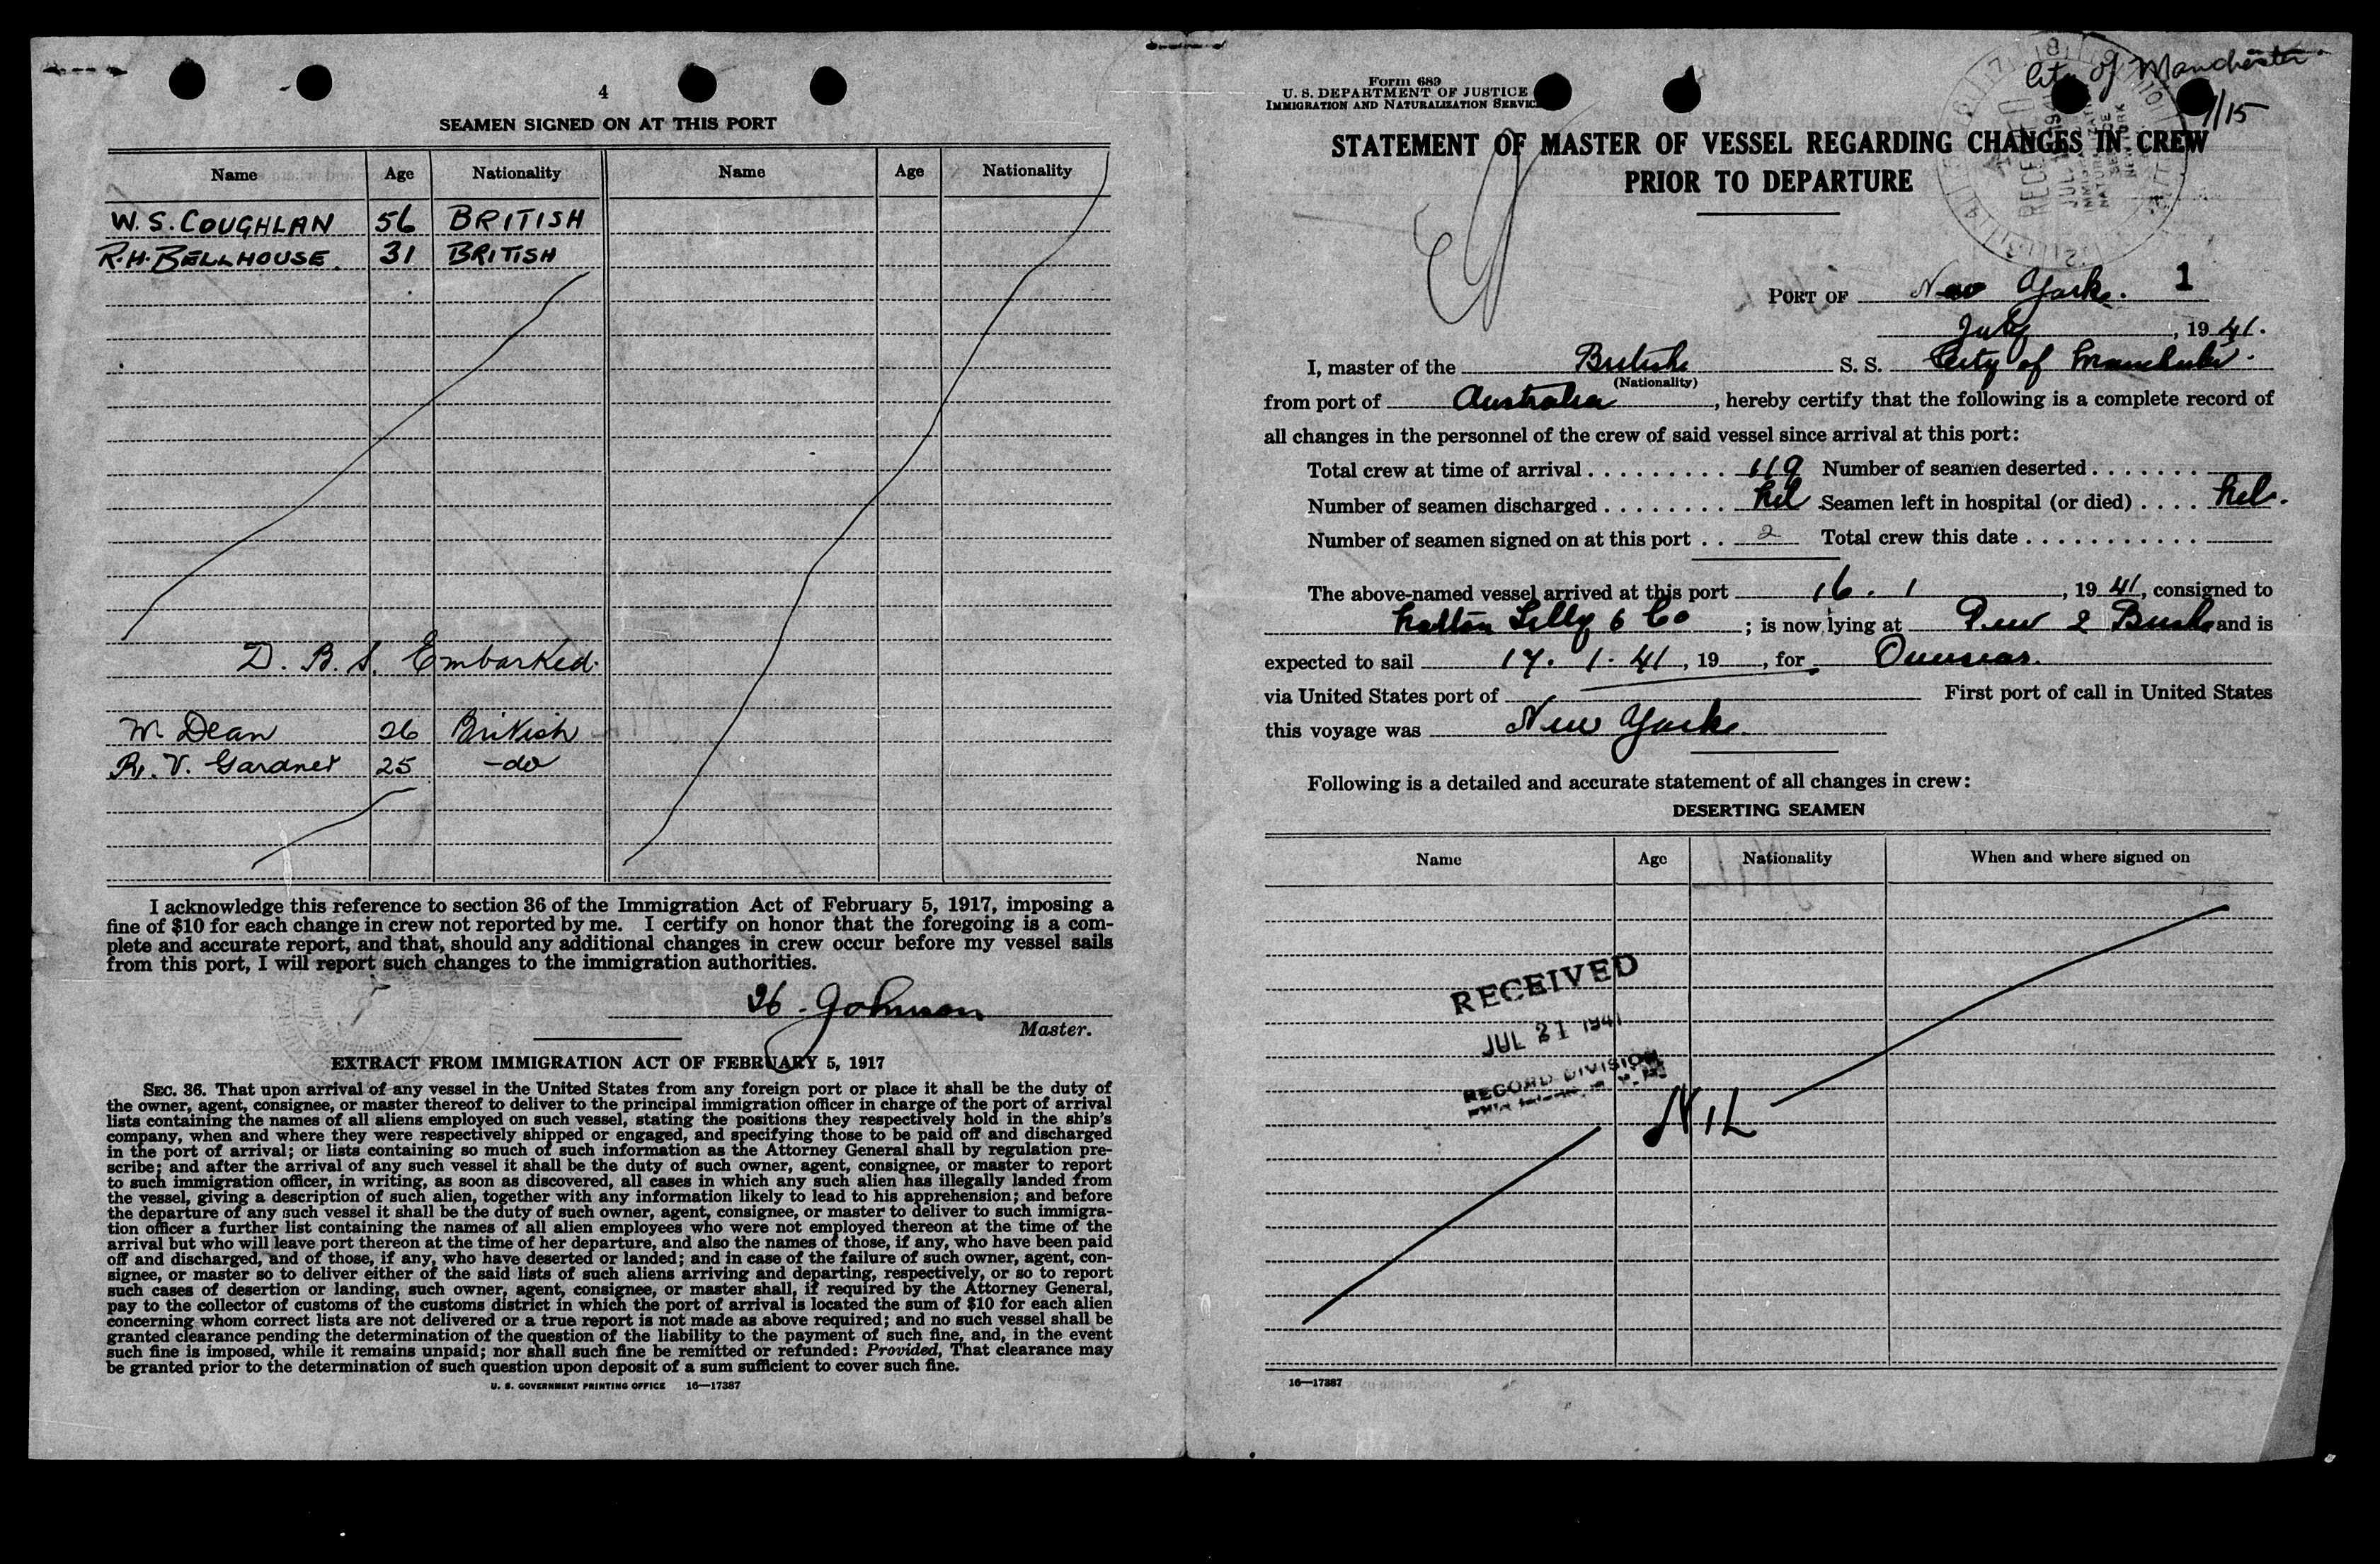 4
SEAMEN SIGNED ON AT THIS PORT
Name Age Nationality Name Age Nationality
W. S. COUGHLAN 56 BRITISH
R. H. BELLHOUSE. 31 BRITISH
D. B. S. Embarked.
W. Dean 26 British
R. V. Gardner 25 -do
I acknowledge this reference to section 36 of the Immigration Act of February 5, 1917, imposing a
fine of $10 for each change in crew not reported by me. I certify on honor that the foregoing is a com-
plete and accurate report, and that, should any additional changes in crew occur before my vessel sails
from this port, I will report such changes to the immigration authorities.
Johnson
Master.
EXTRACT FROM IMMIGRATION ACT OF FEBRUARY 5, 1917
SEC. 36. That upon arrival of any vessel in the United States from any foreign port or place it shall be the duty of
the owner, agent, consignee, or master thereof to deliver to the principal immigration officer in charge of the port of arrival
lists containing the names of all aliens employed on such vessel, stating the positions they respectively hold in the ship's
company, when and where they were respectively shipped or engaged, and specifying those to be paid off and discharged
in the port of arrival; or lists containing so much of such information as the Attorney General shall by regulation pre-
scribe; and after the arrival of any such vessel it shall be the duty of such owner, agent, consignee, or master to report
to such immigration officer, in writing, as soon as discovered, all cases in which any such alien has illegally landed from
the vessel, giving a description of such alien, together with any information likely to lead to his apprehension; and before
the departure of any such vessel it shall be the duty of such owner, agent, consignee, or master to deliver to such immigra-
tion officer a further list containing the names of all alien employees who were not employed thereon at the time of the
arrival but who will leave port thereon at the time of her departure, and also the names of those, if any, who have been paid
off and discharged, and of those, if any, who have deserted or landed; and in case of the failure of such owner, agent, con-
signee, or master so to deliver either of the said lists of such aliens arriving and departing, respectively, or so to report
such cases of desertion or landing, such owner, agent, consignee, or master shall, if required by the Attorney General,
pay to the collector of customs of the customs district in which the port of arrival is located the sum of $10 for each alien
concerning whom correct lists are not delivered or a true report is not made as above required; and no such vessel shall be
granted clearance pending the determination of the question of the liability to the payment of such fine, and, in the event
such fine is imposed, while it remains unpaid; nor shall such fine be remitted or refunded: Provided, That clearance may
be granted prior to the determination of such question upon deposit of a sum sufficient to cover such fine.
U. S. GOVERNMENT PRINTING OFFICE 16—17387
City of Manchester
7/15
Form 689
U. S. DEPARTMENT OF JUSTICE
IMMIGRATION AND NATURALIZATION SERVICE
STATEMENT OF MASTER OF VESSEL REGARDING CHANGES IN CREW
PRIOR TO DEPARTURE
PORT OF New York. 1
July, 1941.
I, master of the British S. S. City of Manchester.
(Nationality)
from port of Australia, hereby certify that the following is a complete record of
all changes in the personnel of the crew of said vessel since arrival at this port:
Total crew at time of arrival . . . . . . . . . 119 Number of seamen deserted . . . . . . .
Number of seamen discharged . . . . . . . . Nil Seamen left in hospital (or died) . . . . Nil.
Number of seamen signed on at this port . . 2 Total crew this date . . . . . . . . . . .
The above-named vessel arrived at this port 16. 1, 1941, consigned to
Lilly & Co; is now lying at 2 Bush and is
expected to sail 17. 1. 41, 19, for Overseas.
via United States port of First port of call in United States
this voyage was New York.
Following is a detailed and accurate statement of all changes in crew:
DESERTING SEAMEN
Name Age Nationality When and where signed on
RECEIVED
JUL 21 1941
RECORD DIVISION
NIL
16—17387